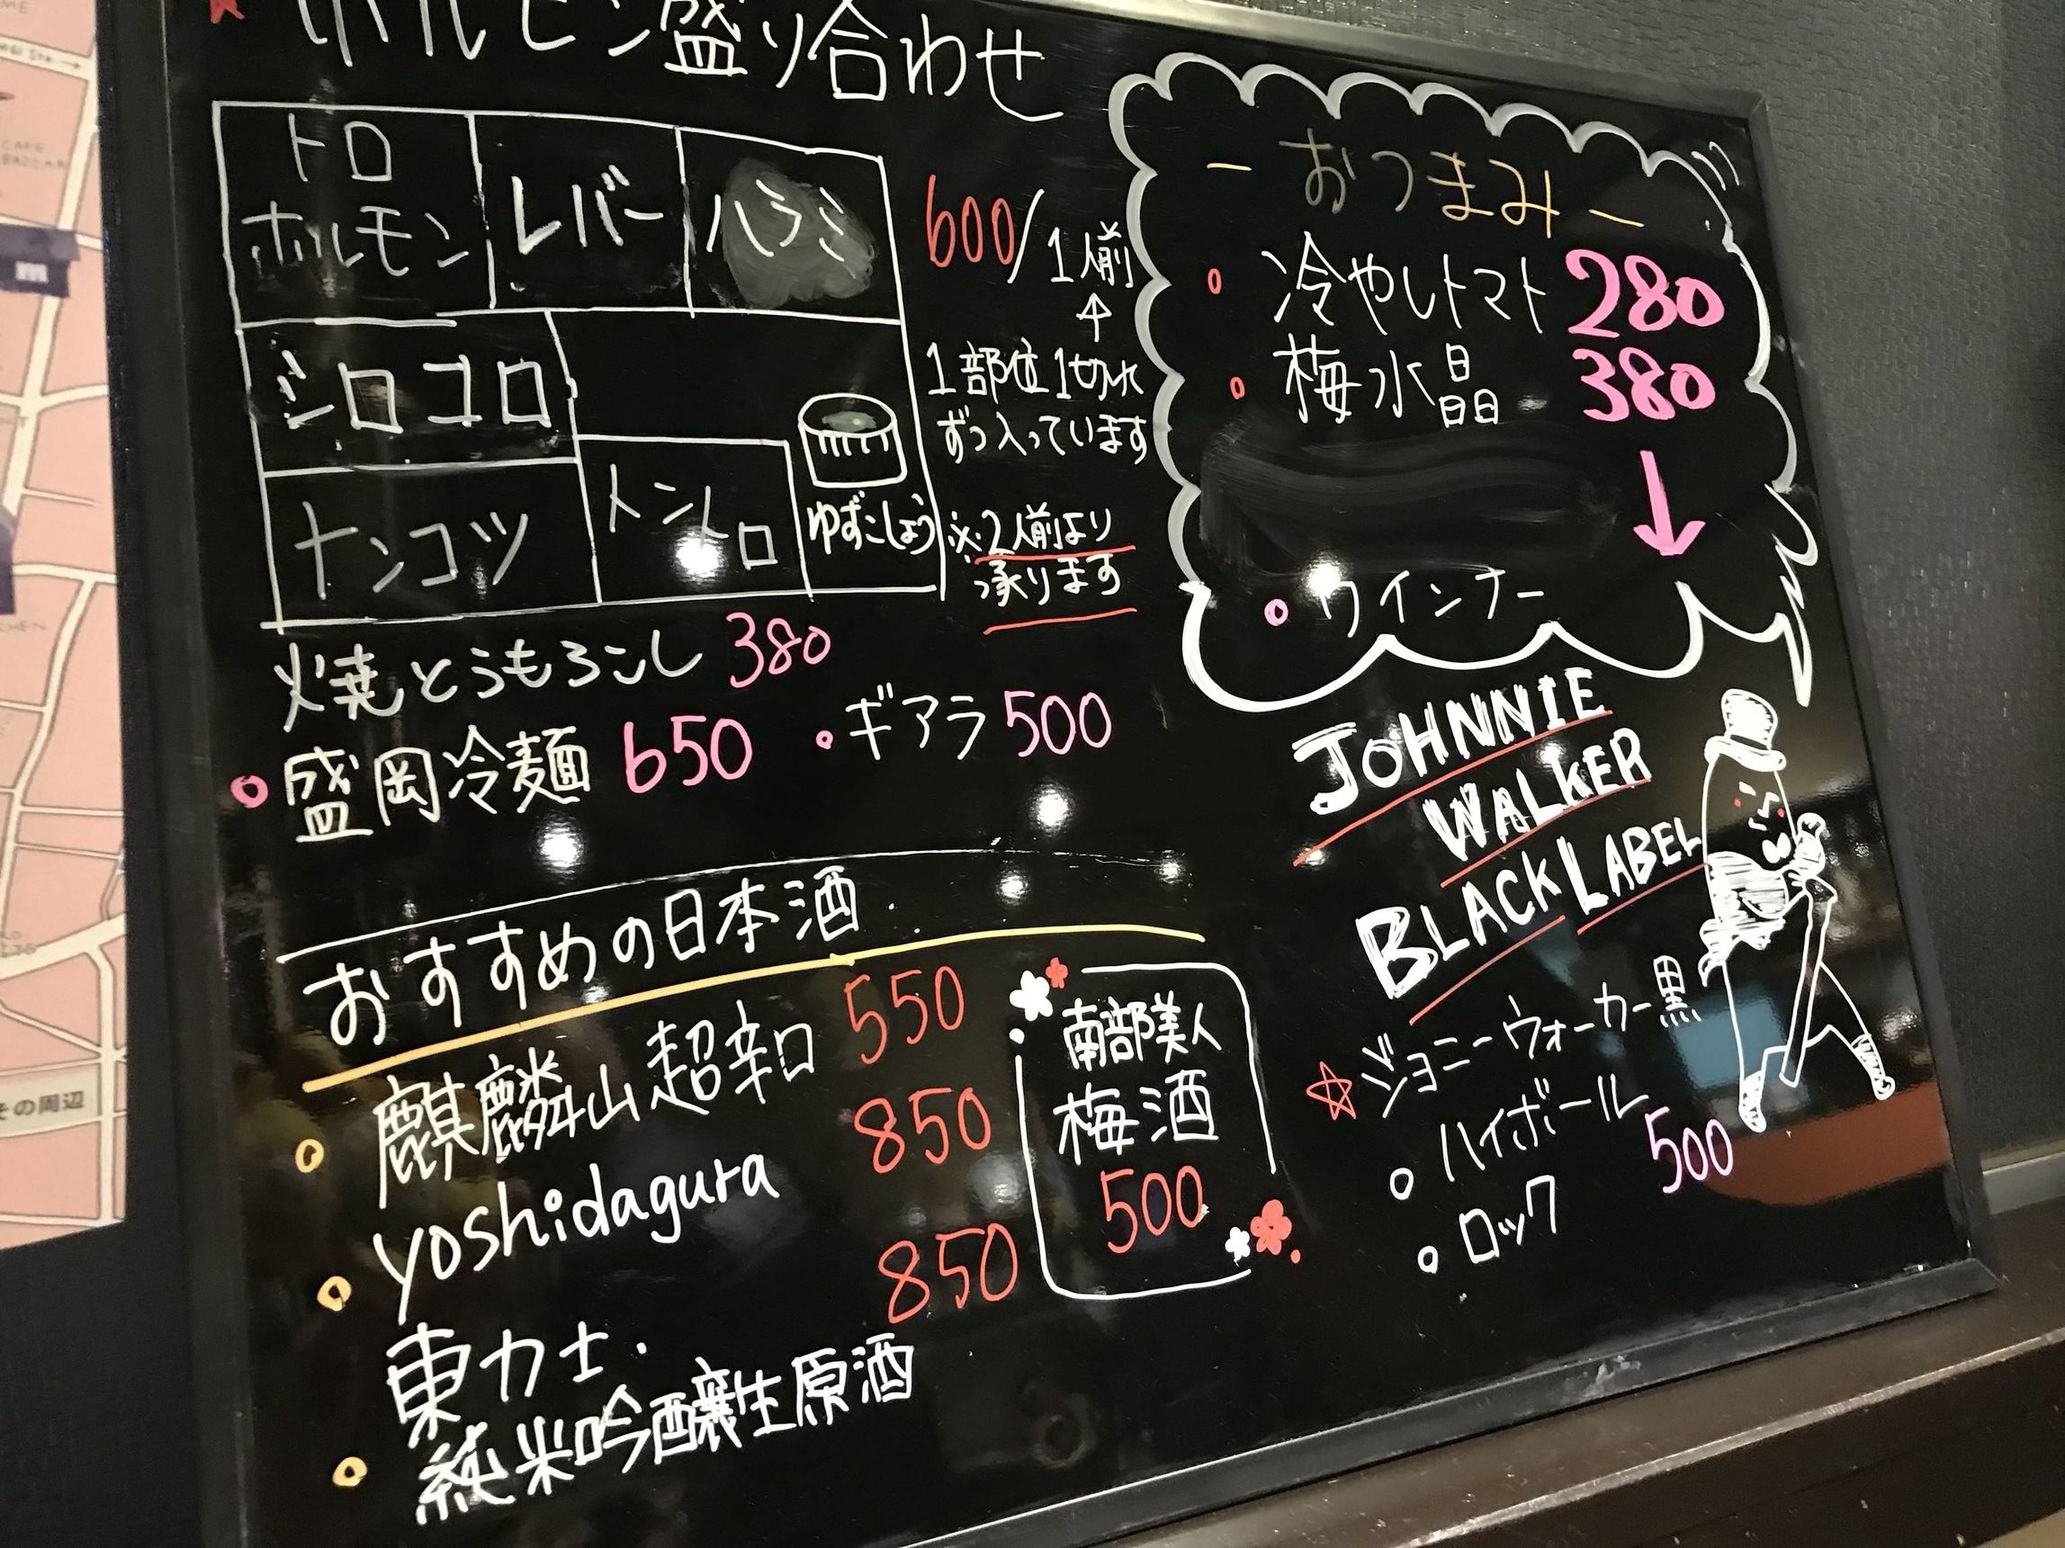 ホルモン盛り合わせ
トロ
ホルモン
レバー
ハラミ
シロコロ
ナンコツ
トントロ
ゆずこしょう
600/1人前
↑
1部位1切れ
ずつ入っています
※2人前より
承ります
焼とうもろこし 380
盛岡冷麺 650
・ギアラ 500
- おつまみ -
冷やしトマト 280
梅水晶 380
↓
ウインナー
JOHNNIE
WALKER
BLACK LABEL
☆ジョニーウォーカー黒
ハイボール
ロック
500
おすすめの日本酒
麒麟山超辛口 550
yoshidagura 850
東力士・ 850
純米吟醸生原酒
南部美人
梅酒
500
その周辺